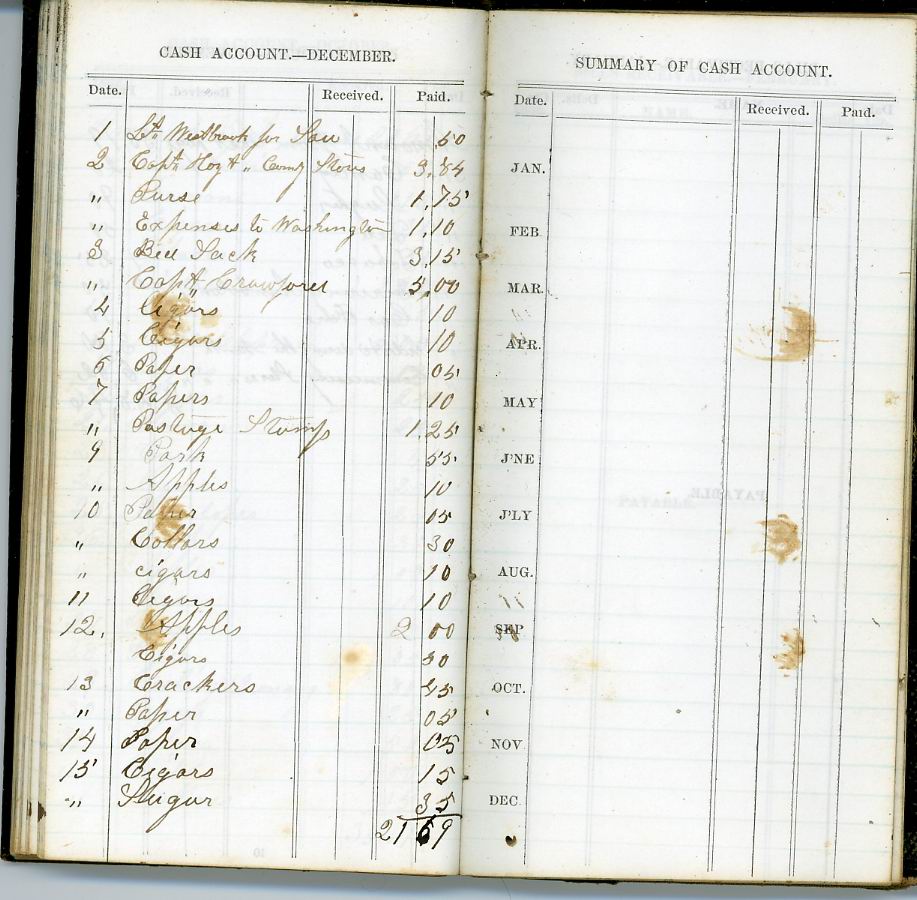 CASH ACCOUNT.—DECEMBER.
Date. Received. Paid.
1 Lt. Westbrook for .50
2 Capt. Hoyt „ Comy Stores 3.84
„ Purse 1.75
„ Expenses to Washington 1.10
3 Bed Sack 3.15
„ Capt. Crawford 5.00
4 Cigars 10
5 Cigars 10
6 Paper 05
7 Papers 10
„ Postage Stamps 1.25
9 Pork 55
„ Apples 10
10 Paper 05
„ Collars 30
„ cigars 10
11 Cigars 10
12. Apples 2 00
Cigars
13 Crackers
„ Paper 05
14 Paper 05
15 Cigars 15
„ Sugar 35
21 69
SUMMARY OF CASH ACCOUNT.
Date. Received. Paid.
JAN.
FEB.
MAR.
APR.
MAY
J'NE
J'LY
AUG.
SEP
OCT.
NOV
DEC.